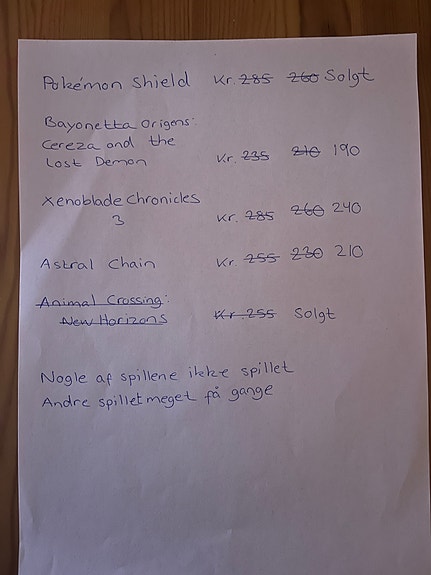 Pokémon Shield Kr. 285 260 Solgt
Bayonetta Origens:
Cereza and the
Lost Demon Kr. 235 210 190
Xenoblade Chronicles
3 Kr. 285 260 240
Astral Chain Kr 255 230 210
Animal Crossing:
New Horizons Kr 255 Solgt
Nogle af spillene ikke spillet
Andre spillet meget få gange